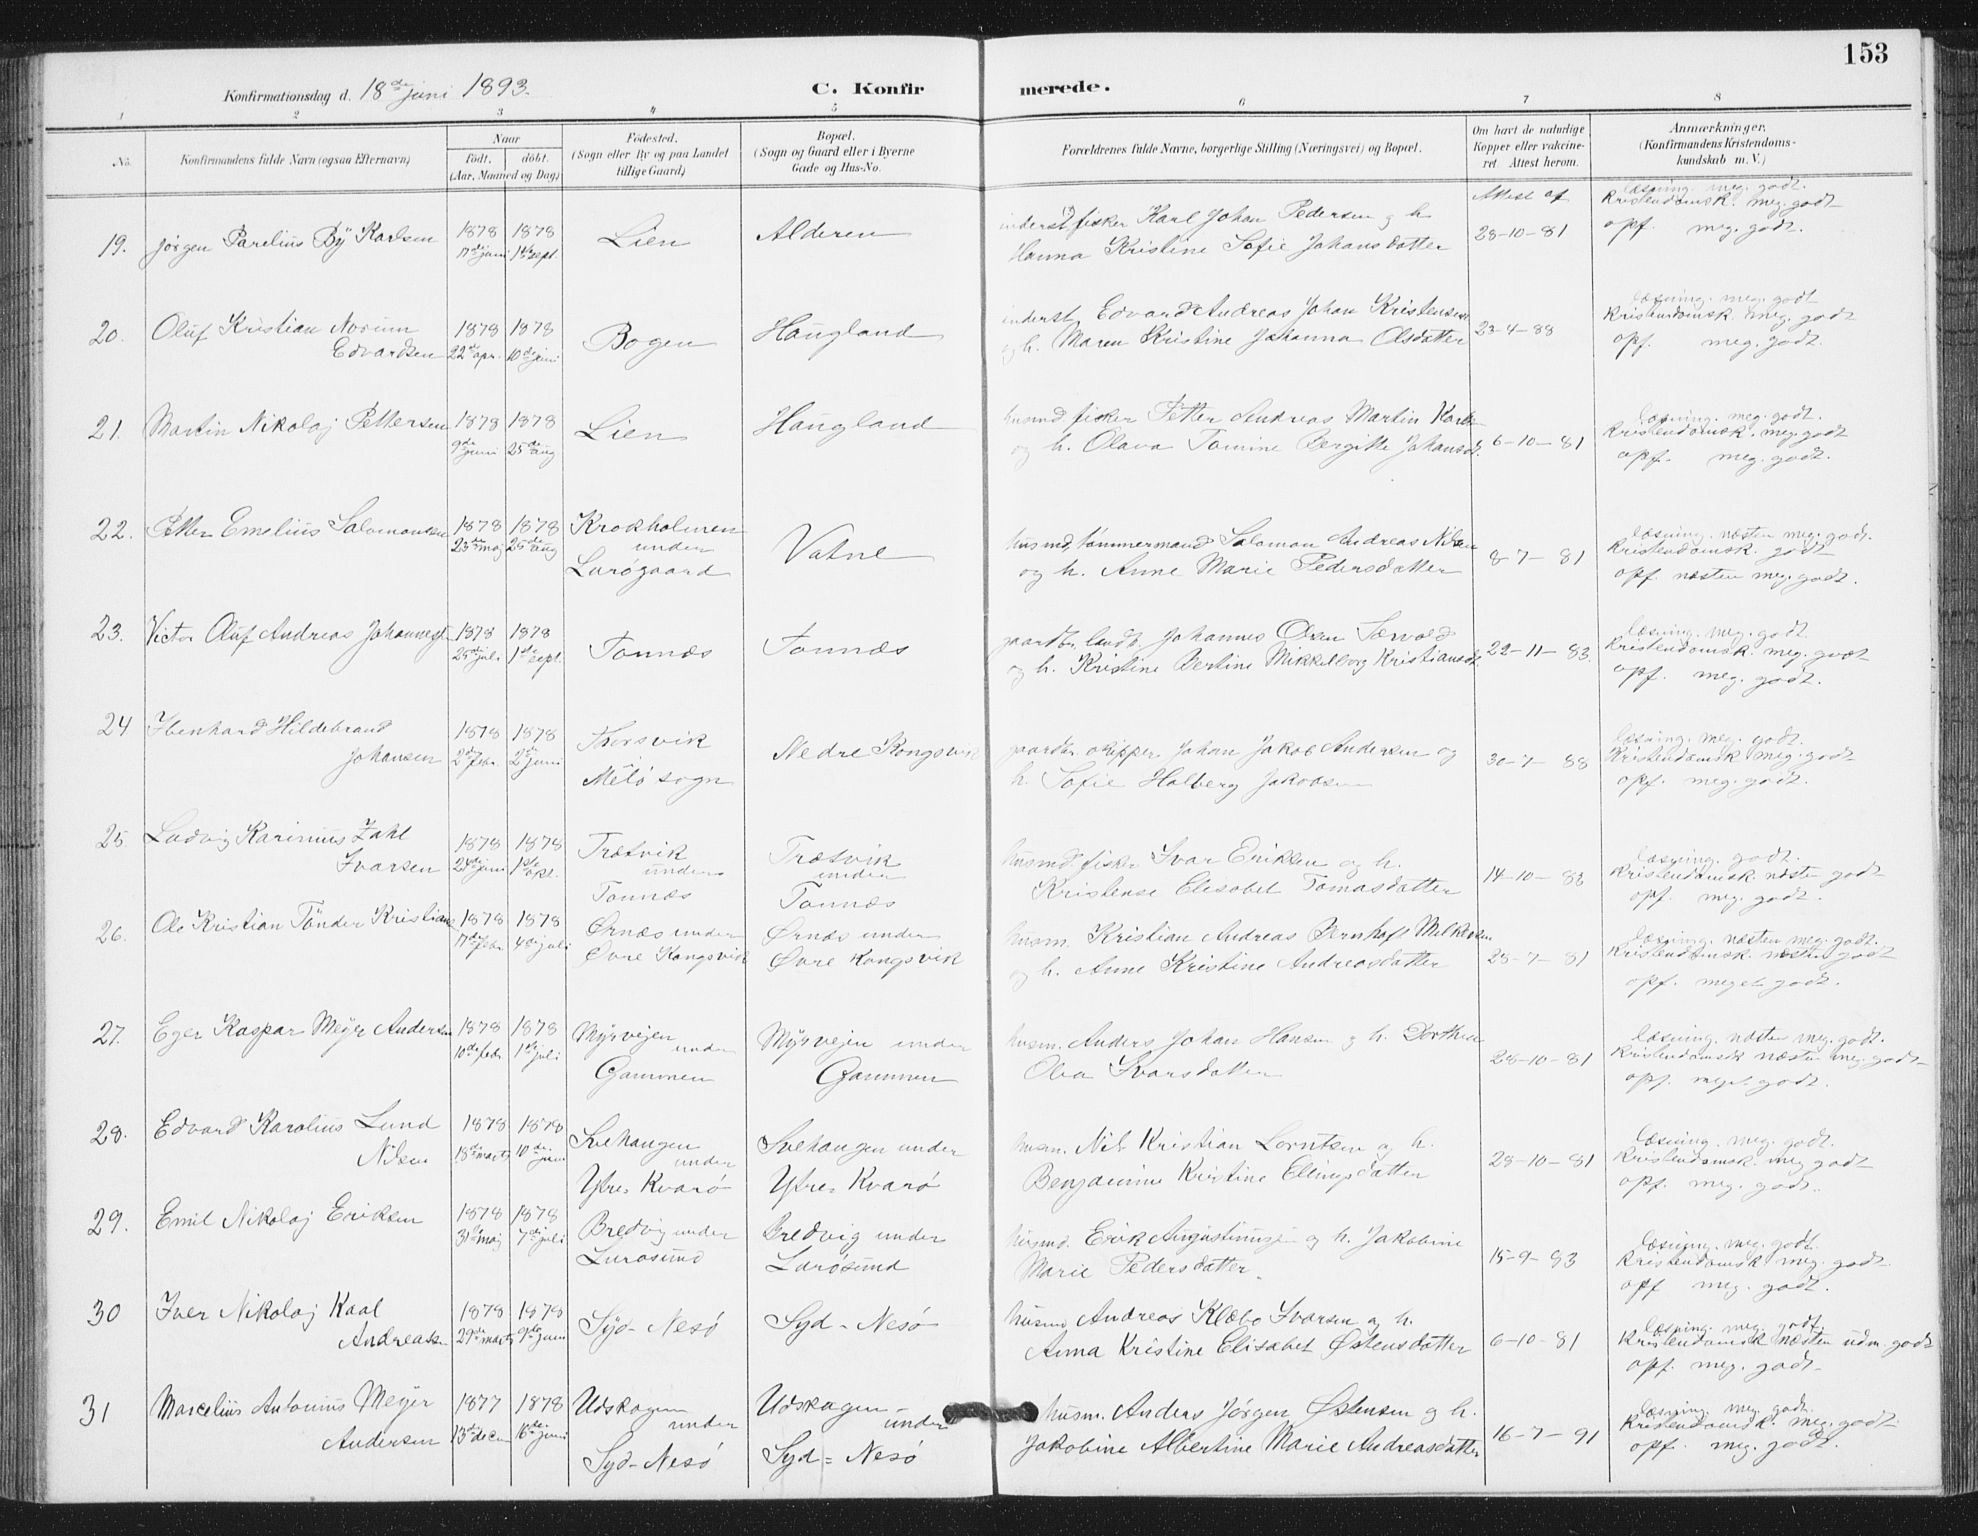 153
Konfirmationsdag d. 18de juni 1893.
C. Konfirmerede.
1 2 3 4 5 6 7 8
No.
Konfirmandens fulde Navn (ogsaa Efternavn)
Naar
født. døbt.
(Aar, Maaned og Dag)
Fødested.
(Sogn eller By og paa Landet
tillige Gaard)
Bopæl.
(Sogn og Gaard eller i Byerne
Gade og Hus-No.
Forældrenes fulde Navne, borgerlige Stilling (Næringsvei) og Bopæl.
Om havt de naturlige
Kopper eller vaccineret
Attest herom.
Anmærkninger.
(Konfirmandens Kristendomskundskab
m. V.)
19. Jørgen Parelius By Karlsen 1878 17de juni 1878 1ste sept. Lien Alderen
inderst fisker Karl Johan Pedersen og h.
Hanna Kristine Sofie Johansdatter
Attest af
28-10-81
læsning. meg. godt.
Kristendomsk. meg. godt
opf. meg. godt.
20. Oluf Kristian Norum
Edvardsen 1878 22de apr. 1878 10de juni Bogen Haugland
inderst Edvard Andreas Johan Kristensen
og h. Maren Kristine Johanna Olsdatter
23-4-88
læsning. meg. godt
Kristendomsk. meg. godt.
opf. meg. godt.
21. Martin Nikolaj Pettersen 1878 9de juni 1878 25de aug Lien Haugland
husmd fisker Petter Andreas Martin
og h. Olava Tomine Bergitte Johansd.
6-10-81
læsning. meg. godt.
Kristendomsk. meg. godt
opf. meg. godt.
22. Petter Emelius Salomonsen 1878 23de maj 1878 25de aug
Krokholmen
under
Lurøgaard
Vatne
husmd, tømmermand Salomon Andreas Nilsen
og h. Anne Marie Pedersdatter
8-7-81
læsning. næsten meg. godt.
Kristendomsk. godt
opf. næsten meg. godt.
23. Victor Oluf Andreas 1878 25de juli 1878 1ste sept. Tonnæs Tonnæs
gaardbr. landh. Johannes Olsen Sævold
og h. Kristine Bertine Mikkelborg Kristiansd.
22-11-83.
læsning. meg. godt.
Kristendomsk. meg. godt
opf. meg. godt.
24 Ibenhard Hildebrand
Johansen 1878 2de febr. 1878 2de juni
Thorsvik
Melø sogn
Nedre Kongsvik
gaardbr. skipper Johan Jakob Andersen og
h. Sofie Holberg Jakobsen
30-7-88
læsning. meg. godt.
Kristendomsk meg. godt
opf. meg. godt.
25. Ludvig Karinius Zahl
Ivarsen 1878 24de juni 1878 1ste
Trætvik
under
Tonnæs
Trætvik
under
Tonnæs
husmd. fisker Ivar Eriksen og h.
Kristense Elisabet Tomasdatter
14-10-83
læsning. godt.
Kristendomsk næsten godt
opf. meg. godt.
26. Ole Kristian Tönder 1878 17de febr. 1878 4de juli
Ørnæs under
Øvre Kongsvik
Ørnæs under
Øvre Kongsvik
husm. Kristian Andreas Bernhoft
og h. Anne Kristine Andreasdatter
28-7-81
læsning. næsten meg. godt.
Kristendomsk. næsten godt
opf. meget godt.
27. Eger Kaspar Meyer Andersen 1878 10de febr 1878 1ste juli
Myrvejen
under
Gammen
Myrvejen under
Gammen
husm. Anders Johan Hansen og h. Dorthea
Olea Ivarsdatter
28-10-81
læsning. næsten meg. godt.
Kristendomsk næsten meg. godt
opf. meget godt.
28. Edvard Karolius Lund
Nilsen 1878 18de marts 1878 10de juni
Svehaugen
under
Ytre Kvarø
Svehaugen under
Ytre Kvarø
husm. Nils Kristian Lorntsen og h.
Benjamine Kristine Ellingsdatter
28-10-81
læsning. meg. godt.
Kristendomsk. meg godt
opf. meg. godt.
29. Emil Nikolaj Eriksen 1878 31te maj 1878 7de juli
Bredvig under
Lurøsund
Bredvig under
Lurøsund
husmd. Erik Augustinusen og h. Jakobine
Marie Pedersdatter.
15-9-83
læsning. meg. godt.
Kristendomsk meg. godt.
opf meg. godt.
30 Iver Nikolaj Kaal
Andreasen 1878 29de marts 1878 9de juni Syd-Nesø Syd-Nesø
husmd Andreas Klæbo Ivarsen og h.
Anna Kristine Elisabet Østensdatter
6-10-81
læsning. meg. godt,
Kristendomsk næsten udm. godt
opf. meg. godt.
31 Marcelius Antonius Meyer
Andersen 1877 13de decem 1878 16de juni
Udskagen
under
Syd-Nesø
Udskagen-
under
Syd-Nesø
husm. Anders Jørgen Østensen og h.
Jakobine Albertine Marie Andreasdatter
16-7-91
læsning. meg. godt.
Kristendomsk. meg. godt.
opf. meg. godt.